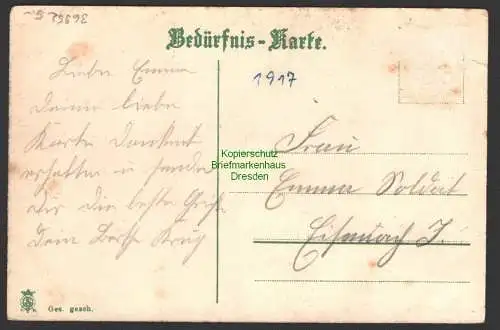 36952 5.-
Bedürfnis-Karte.
1917
Liebe Emma
Deine liebe
Karte dankend
erhalten u sende
dir die beste Grüße
Dein
Kopierschutz
Briefmarkenhaus
Dresden
Frau
Emma Soldat
Eisenach
Ges. gesch.